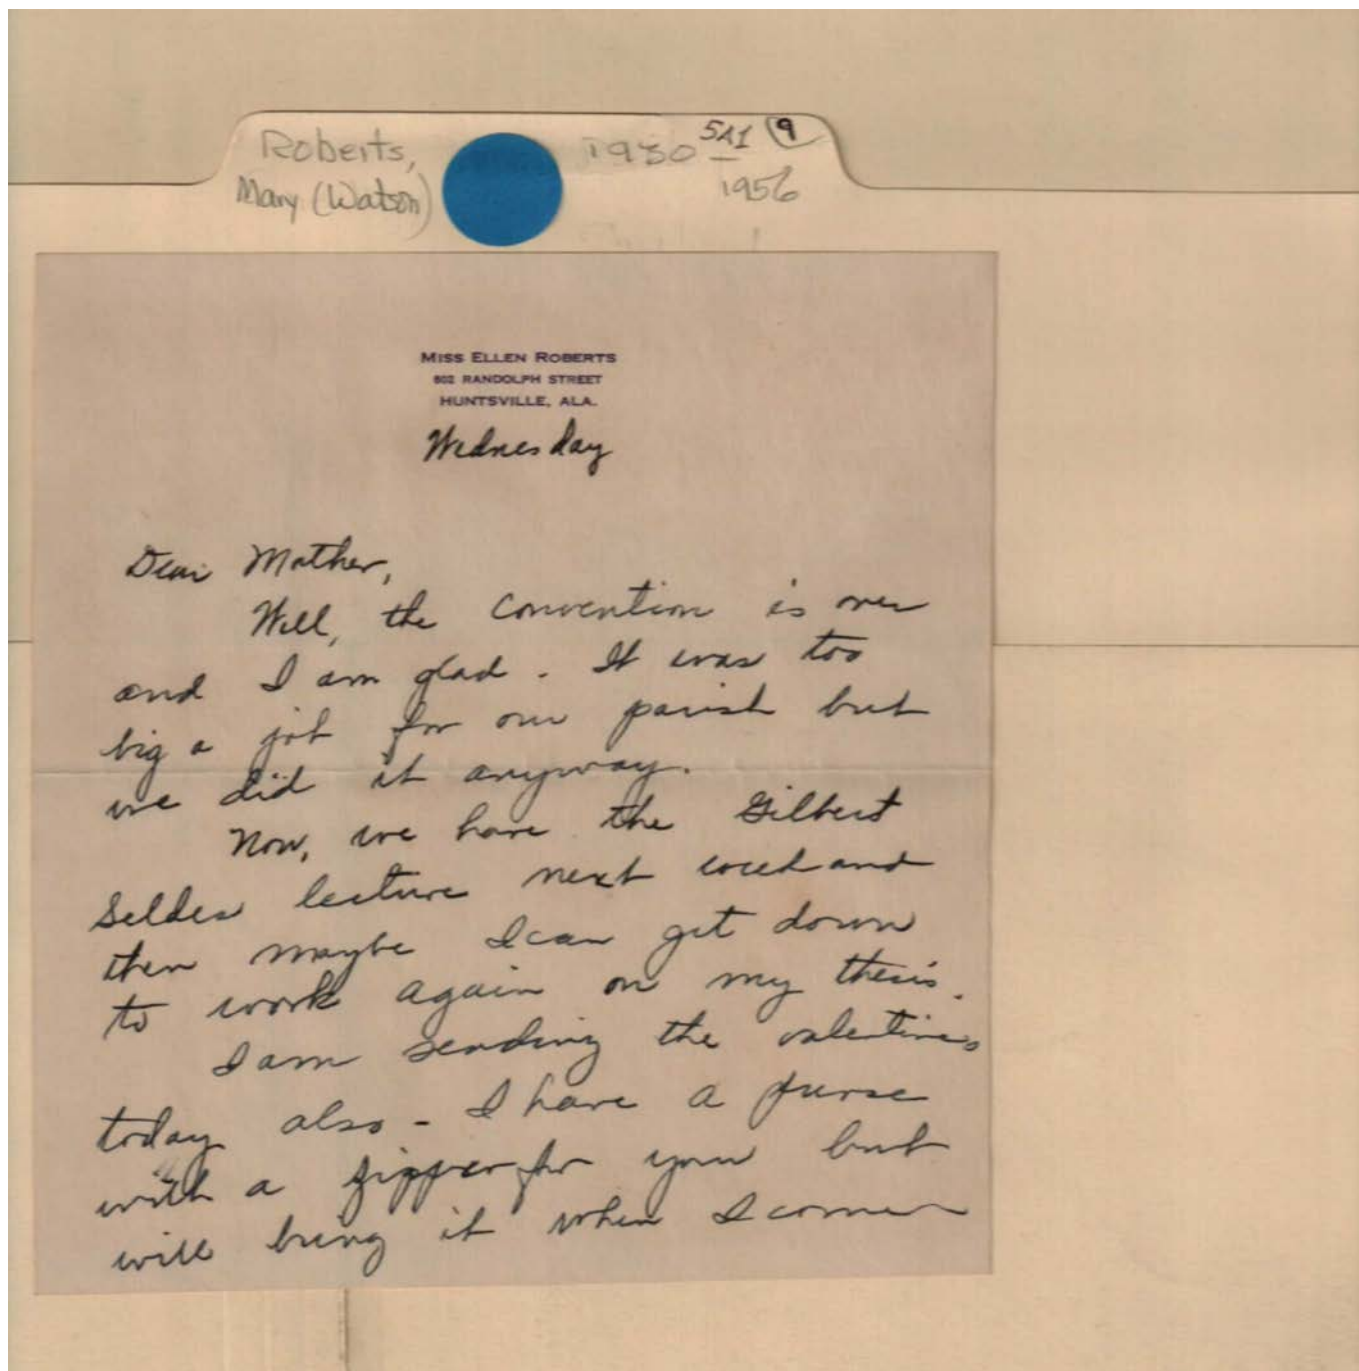 Roberts,
Mary (Watson)
1930 –
1956
5A1 9
MISS ELLEN ROBERTS
602 RANDOLPH STREET
HUNTSVILLE, ALA.
Wednesday
Dear Mother,
Well, the convention is over
and I am glad. It was too
big a job for our parish but
we did it anyway.
Now, we have the Gilbert
Seldes lecture next week and
then maybe I can get down
to work again on my thesis.
I am sending the valentines
today also - I have a purse
with a zipper for you but
will bring it when I come